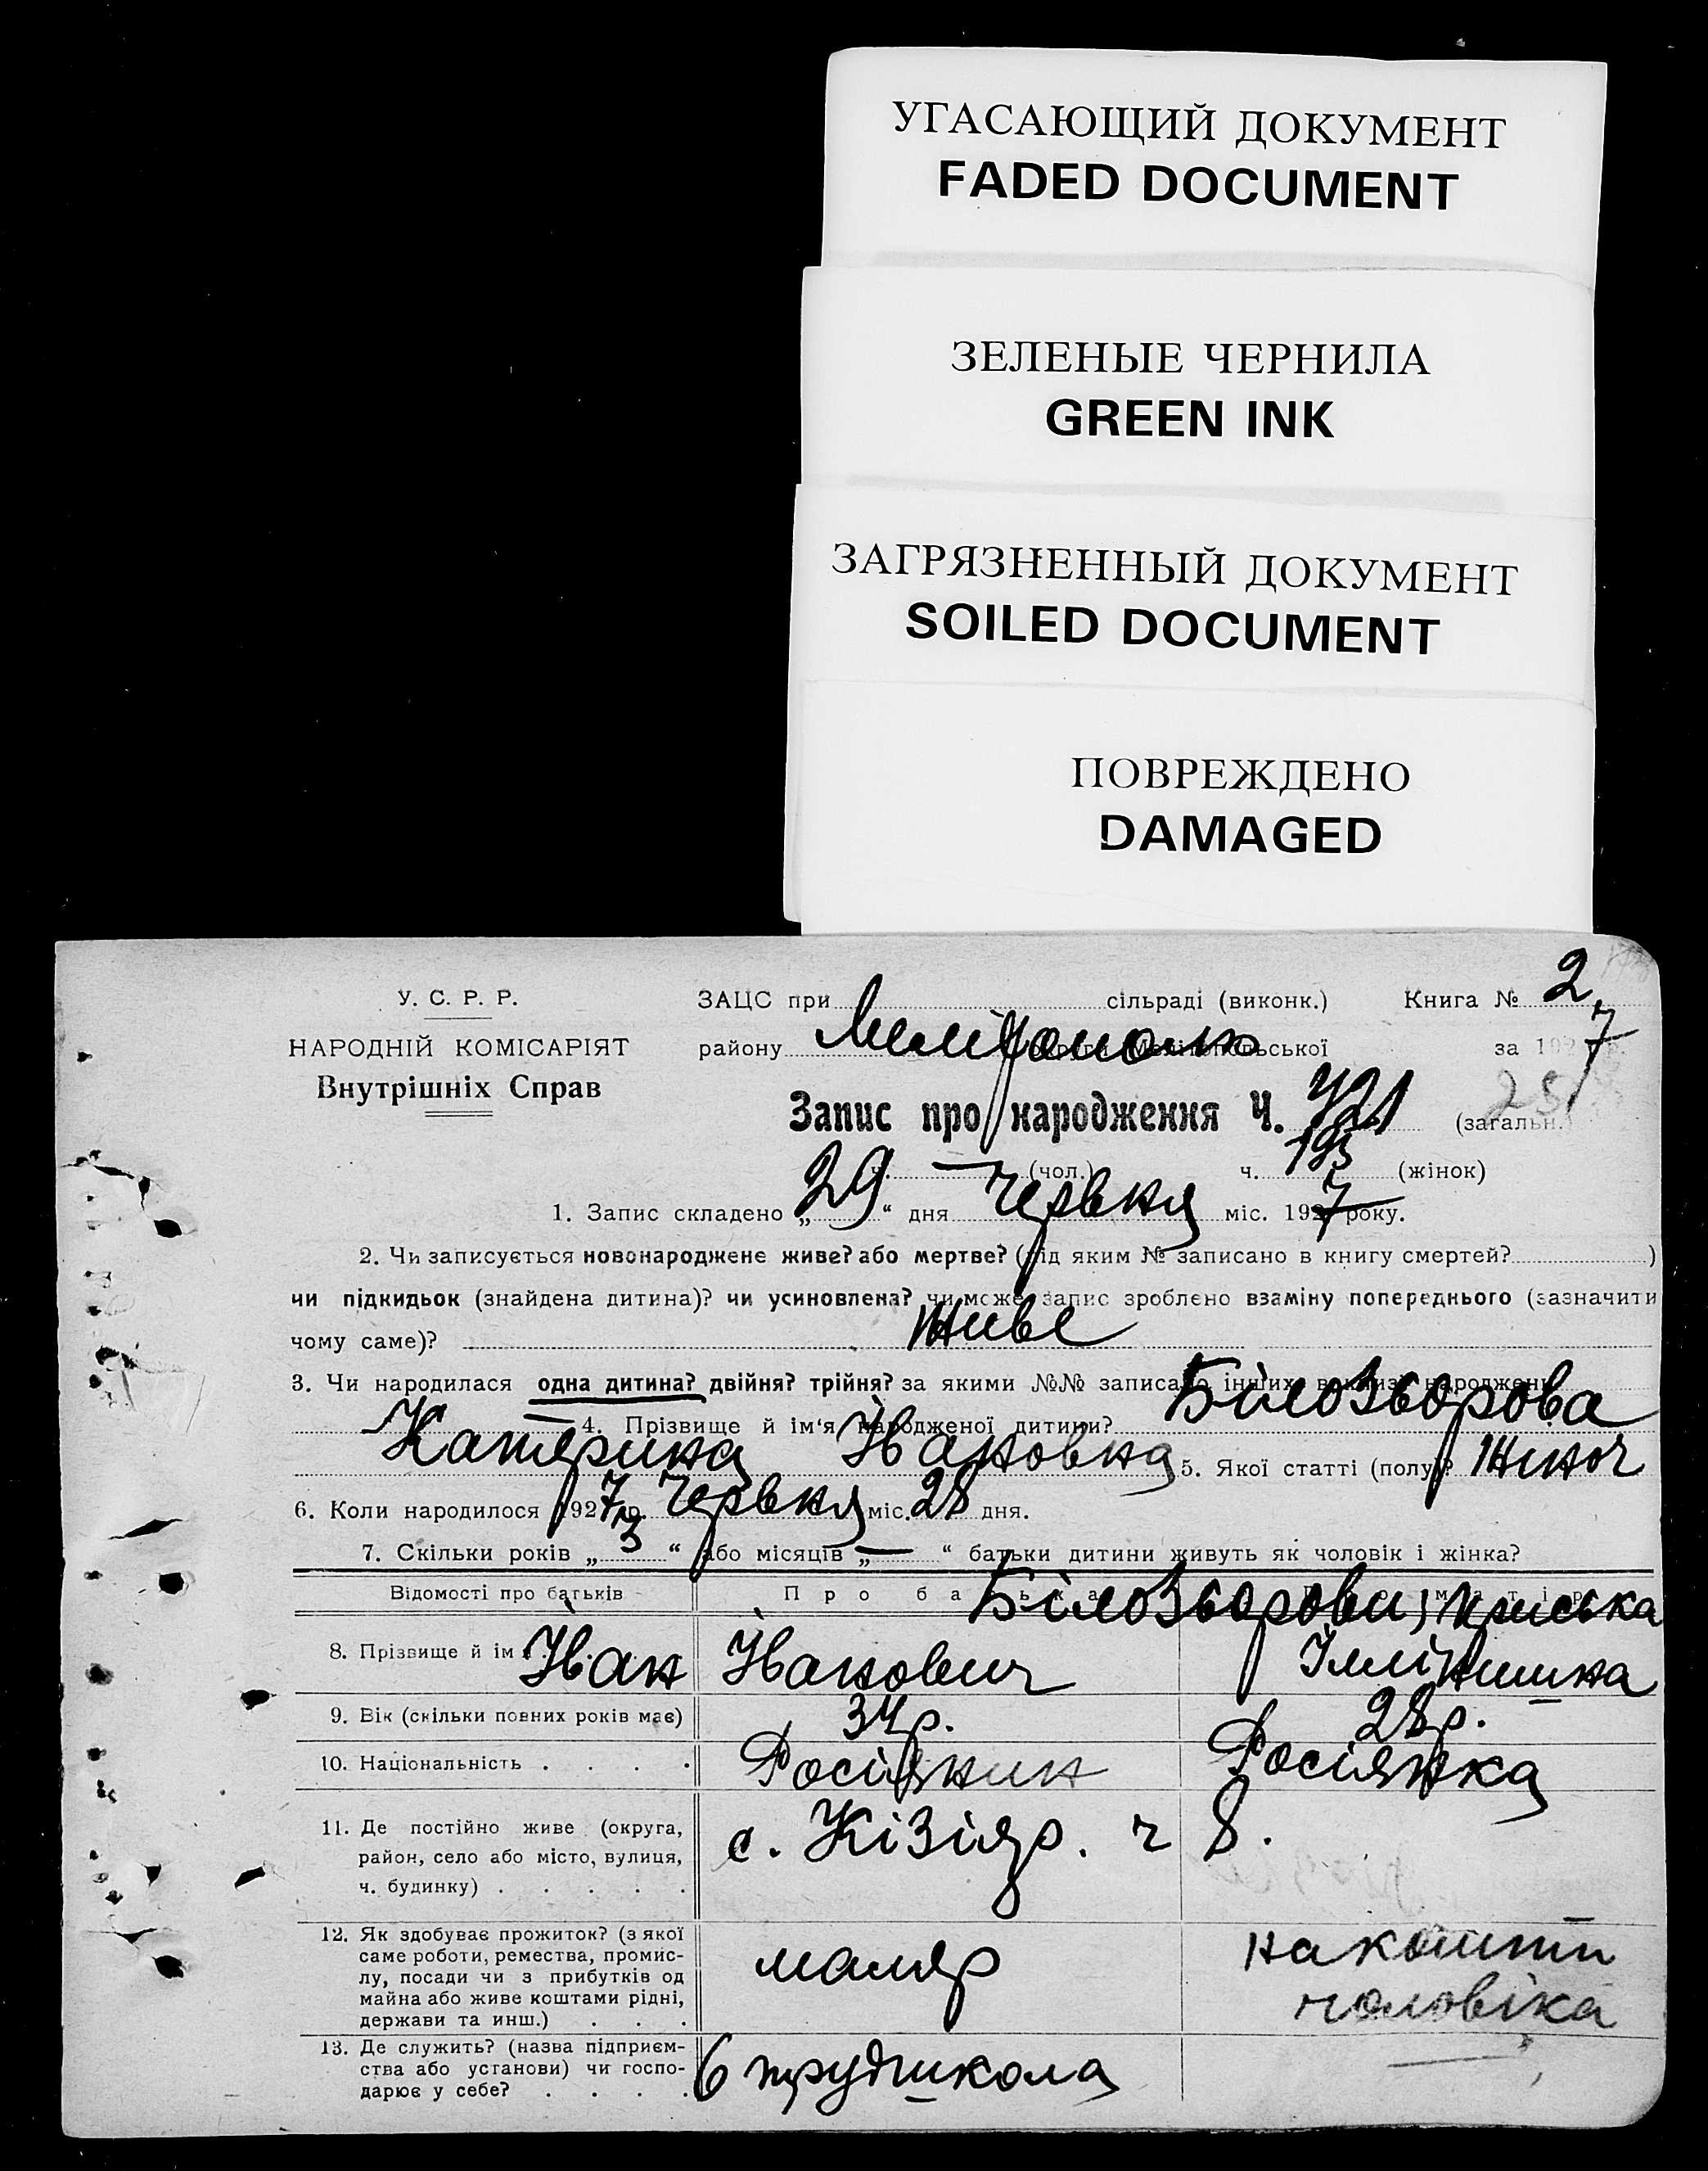 УГАСАЮЩИЙ ДОКУМЕНТ
FADED DOCUMENT
ЗЕЛЕНЫЕ ЧЕРНИЛА
GREEN INK
ЗАГРЯЗНЕННЫЙ ДОКУМЕНТ
SOILED DOCUMENT
ПОВРЕЖДЕНО
DAMAGED
У. С. Р. Р.
НАРОДНІЙ КОМІСАРІЯТ
Внутрішніх Справ
ЗАЦС при сільраді (виконк.) Книга № 2
району Мелітополю округи Мелітопольської за 1927
Запис про народження Ч. 421 (загальн.)
ч. — (чол.) ч. 193 (жінок)
1. Запис складено „29“ дня Червня міс. 1927 року.
2. Чи записується новонароджене живе? або мертве? (під яким № записано в книгу смертей?)
чи підкидьок (знайдена дитина)? чи усиновлена? чи може запис зроблено взаміну попереднього (зазначити
чому саме)? живе
3. Чи народилася одна дитина? двійня? трійня? за якими №№ записано інших в книзі народжень
— 4. Прізвище й ім'я народженої дитини? Білозьорова
Катерина Івановна 5. Якої статті (полу)? Жіноч
6. Коли народилося 1927 р. Червня міс. 28 дня.
7. Скільки років „3“ або місяців „—“ батьки дитини живуть як чоловік і жінка?
Відомості про батьків Про батька Про матір
Білозьорови;
8. Прізвище й ім'я Іван Іванович
9. Вік (скільки повних років має) 34р. 28р.
10. Національність . . . . Росіянин Росіянка
11. Де постійно живе (округа,
район, село або місто, вулиця,
ч. будинку) . . . . .
с. Кізіяр. ч 8.
12. Як здобуває прожиток? (з якої
саме роботи, ремества, промис-
лу, посади чи з прибутків од
майна або живе коштами рідні,
держави та инш.) . . .
маляр на кошти
чоловіка
13. Де служить? (назва підприєм-
ства або установи) чи госпо-
дарює у себе? . . . .
6 трудшкола